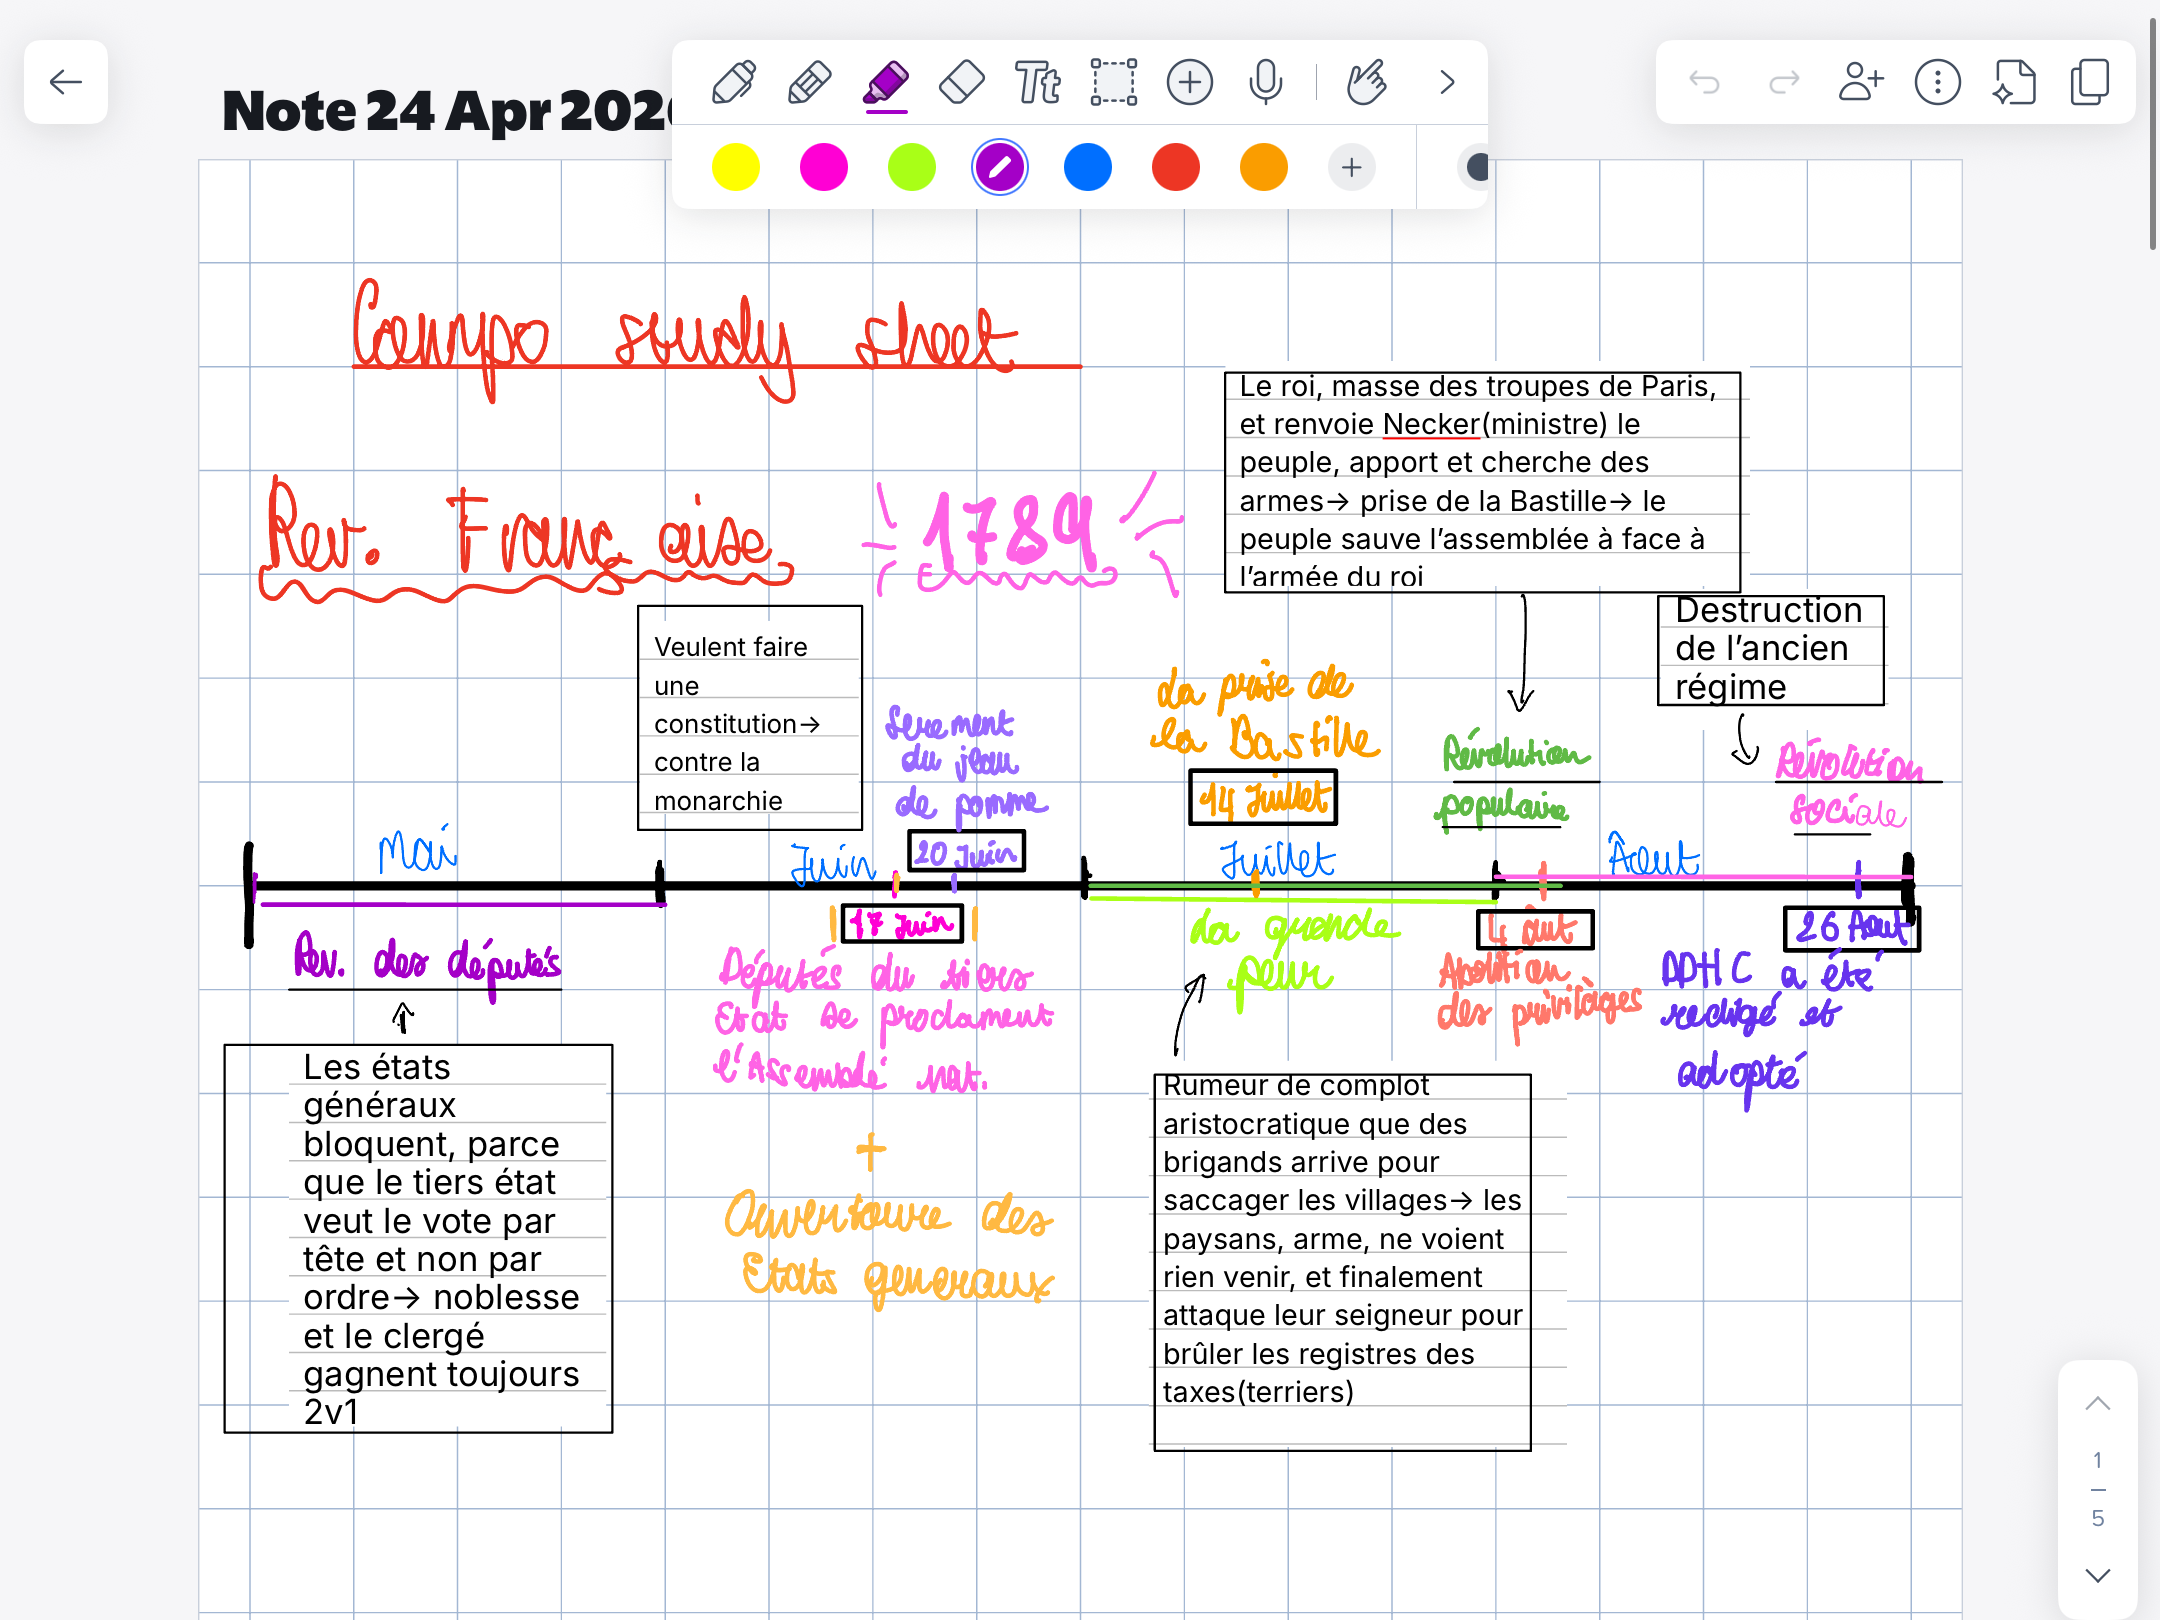 Note 24 Apr 202
Compo study sheet
Rev. Française
1789
Le roi, masse des troupes de Paris,
et renvoie Necker(ministre) le
peuple, apport et cherche des
armes→ prise de la Bastille→ le
peuple sauve l'assemblée à face à
l'armée du roi
Destruction
de l'ancien
régime
Veulent faire
une
constitution→
contre la
monarchie
Serement
du jeau
de pomme
20 Juin
La prise de
la Bastille
14 Juillet
Révolution
populaire
Révolution
sociale
Mai
Juin
Juillet
Âout
17 Juin
4 out
26 Aout
Rev. des députés
Députés du tiers
Etat se proclament
l'Assemblé nat.
+
Ouverture des
Etats generaux
La grande
peur
Abolition
des privilàges
DDHC a été
redigé et
adopté
Les états
généraux
bloquent, parce
que le tiers état
veut le vote par
tête et non par
ordre→ noblesse
et le clergé
gagnent toujours
2v1
Rumeur de complot
aristocratique que des
brigands arrive pour
saccager les villages→ les
paysans, arme, ne voient
rien venir, et finalement
attaque leur seigneur pour
brûler les registres des
taxes(terriers)
1
5